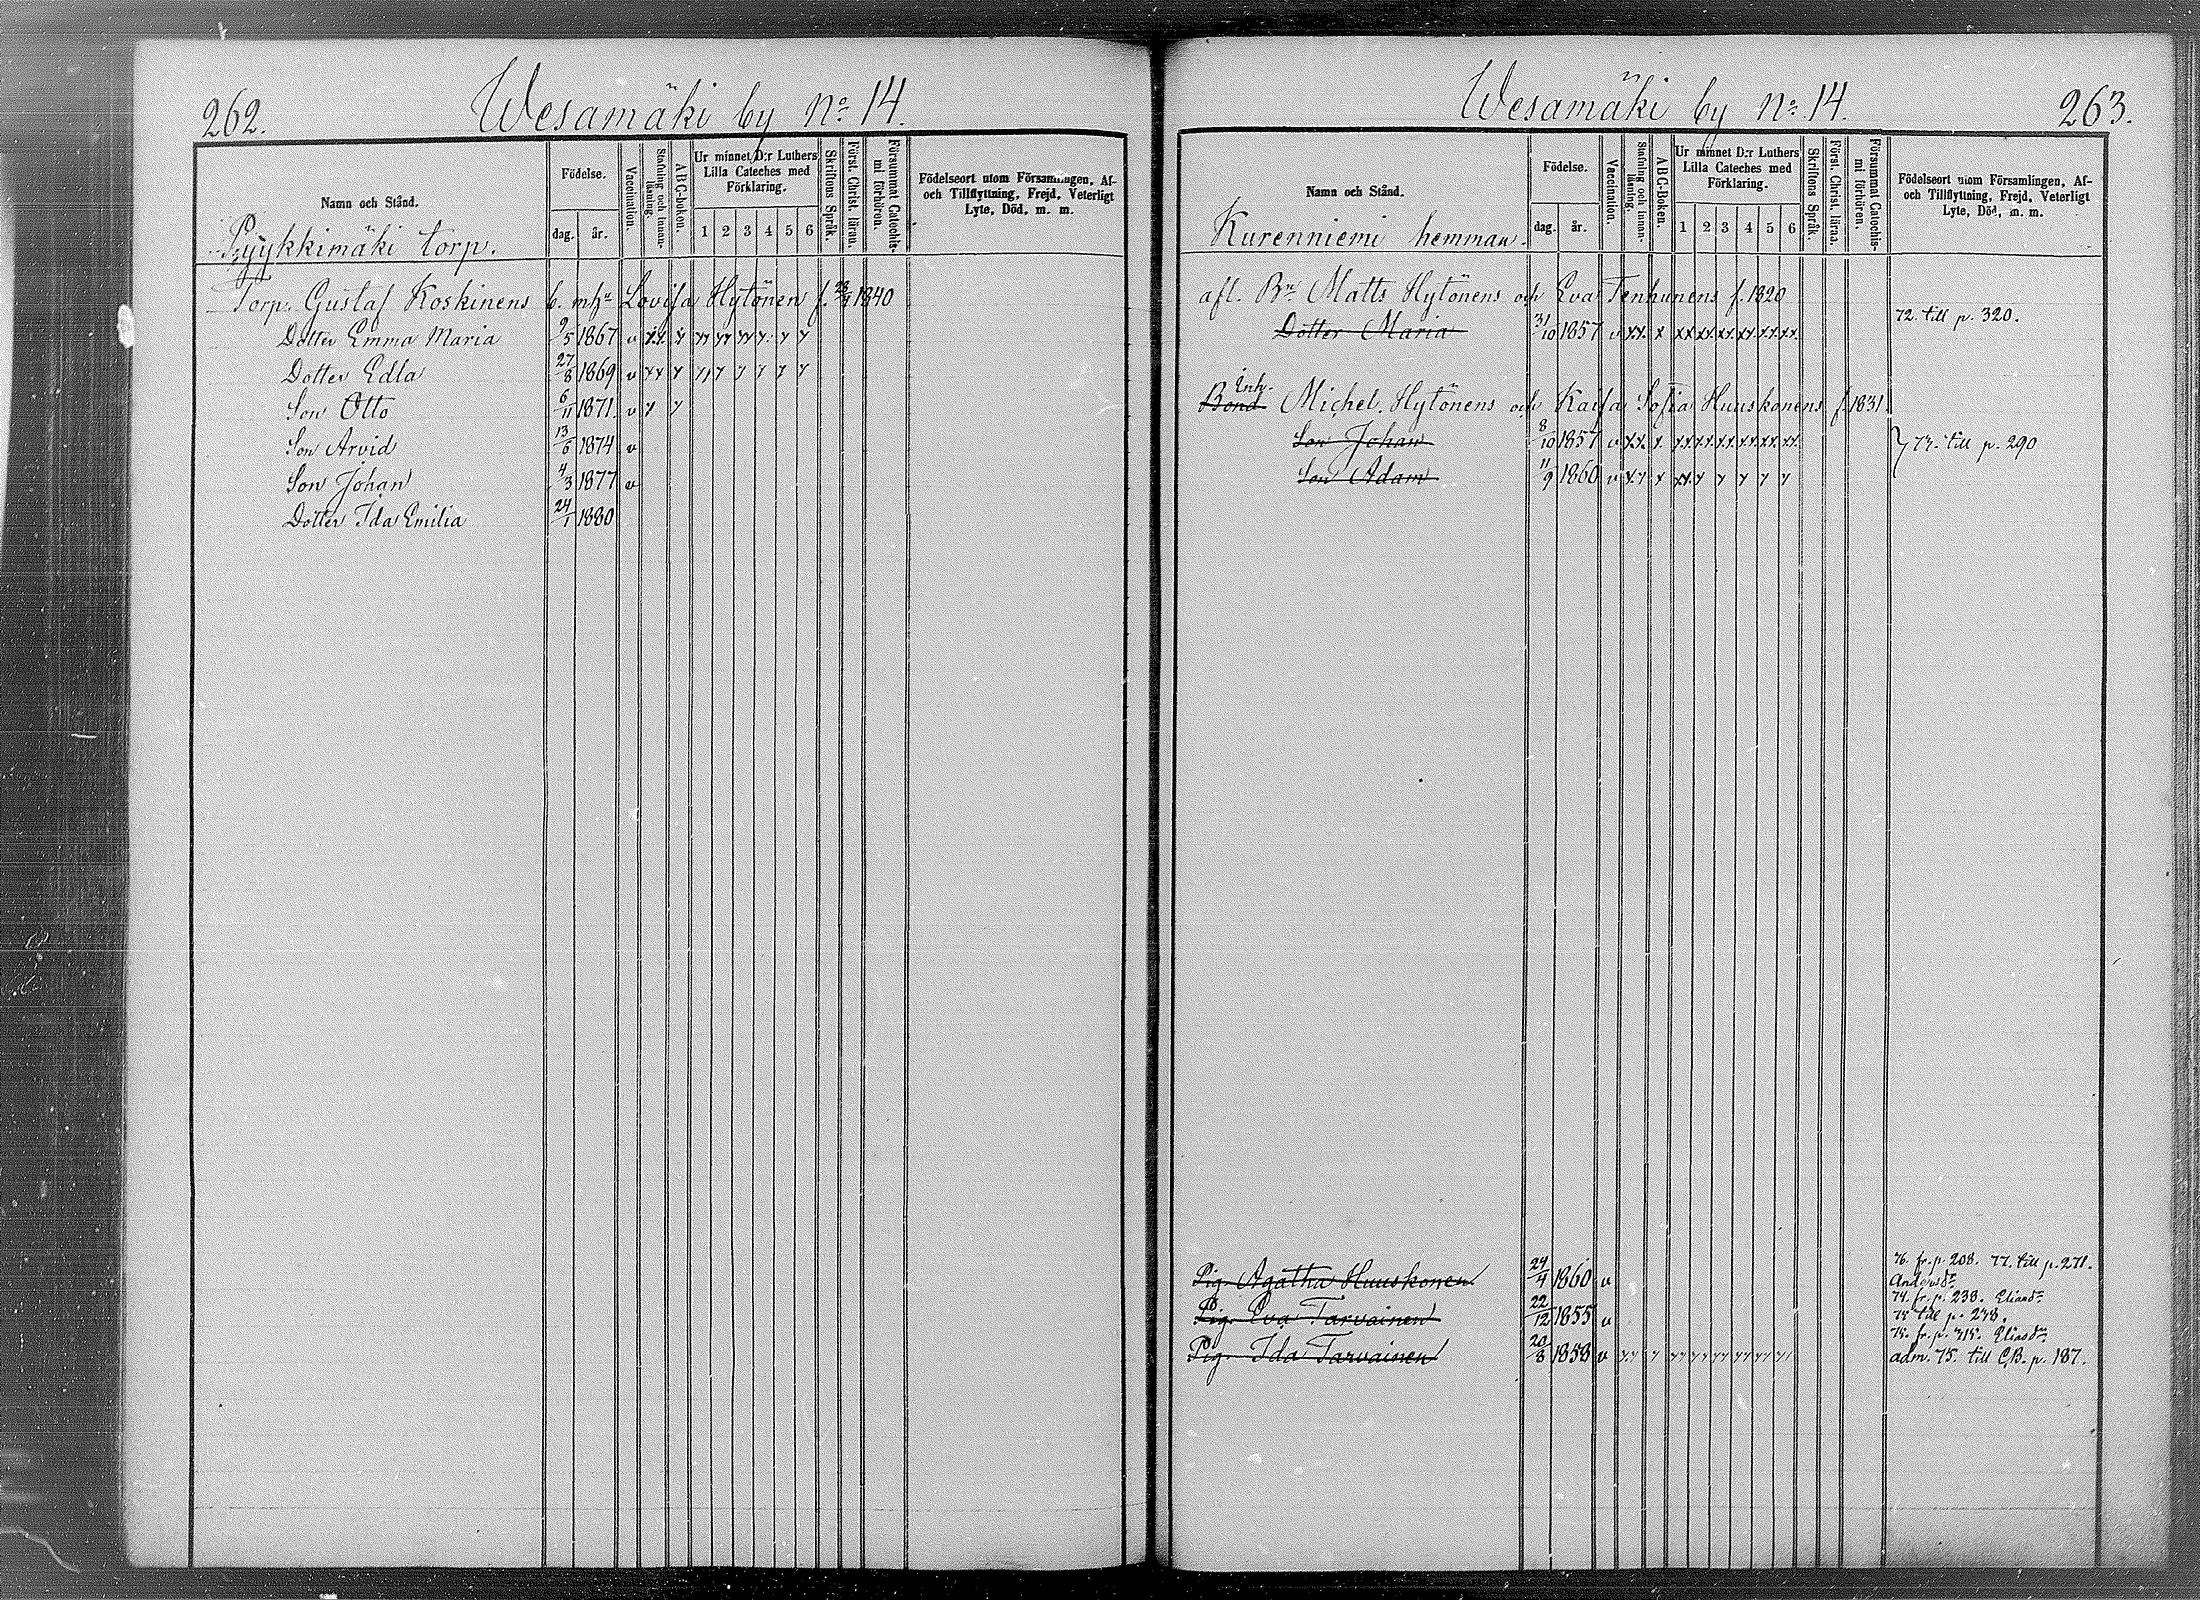 262.
Wesamäki by No 14.
Namn och Stånd.
Födelse.
dag.
år.
Vaccination.
Stafning och innan-läsning.
ABC-boken.
Ur minnet D:r Luthers
Lilla Cateches med
Förklaring.
1 2 3 4 5 6
Skriftens Språk.
Först. Christ. läran.
Försummat Catechis-mi förhören.
Födelseort utom Församlingen, Af-
och Tillflyttning, Frejd, Veterligt
Lyte, Död, m. m.
Pyykkimäki torp.
Torp. Gustaf Koskinens b. m hu Lovisa Hytönen f. 1840
Dotter Emma Maria 9/5 1867 v
Dotter Edla 27/8 1869 v
Son Otto 6/11 1871. v
Son Arvid 13/6 1874 v
Son Johan 4/3 1877 v
Dotter Ida Emilia 24/1 1880
Wesamäki by No 14.
263.
Namn och Stånd.
Födelse.
dag.
år.
Vaccination.
Stafning och innan-läsning.
ABC-Boken.
Ur minnet D:r Luthers
Lilla Cateches med
Förklaring.
1 2 3 4 5 6
Skriftens Språk.
Först. Christ. läran.
Försummat Catechis-mi förhören.
Födelseort utom Församlingen, Af-
och Tillflyttning, Frejd, Veterligt
Lyte, Död, m. m.
Kurenniemi hemman.
afl. Bn Matts Hytönens och Eva Tenhunens f. 1820
Dotter Maria 31/10 1857 v x.x. x xx xx xx xx xx xx 72. till p. 320.
Inh.
Bond Michel. Hytönens och Kaisa Sofia Huuskonens f. 1831.
Son Johan 8/10 1857 v x.x. x. xx xx xx xx xx xx 73. till p. 290
Son Adam 11/9 1860 v
76. fr. p. 208. 77. till p. 271.
Pig. Agatha Huuskonen 24/4 1860 v Andersdr
74. fr. p. 238. Eliasdr
Pig. Eva Tarvainen 22/12 1855 v 75 till p. 238.
75. fr. p. 315. Eliasdr
Pig. Ida Tarvainen 20/8 1858 v adm. 75. till C.B. p. 187.